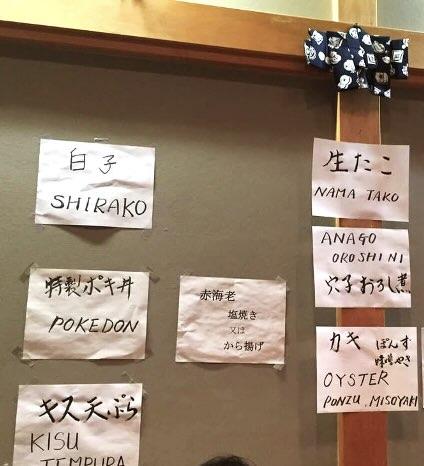 白子
SHIRAKO
特製ポキ丼
POKEDON
キス天ぷら
KISU
TEMPURA
赤海老
塩焼き
又は
から揚げ
生たこ
NAMA TAKO
ANAGO
OROSHINI
穴子おろし煮
カキ ぽんず
味噌やき
OYSTER
PONZU, MISOYAKI